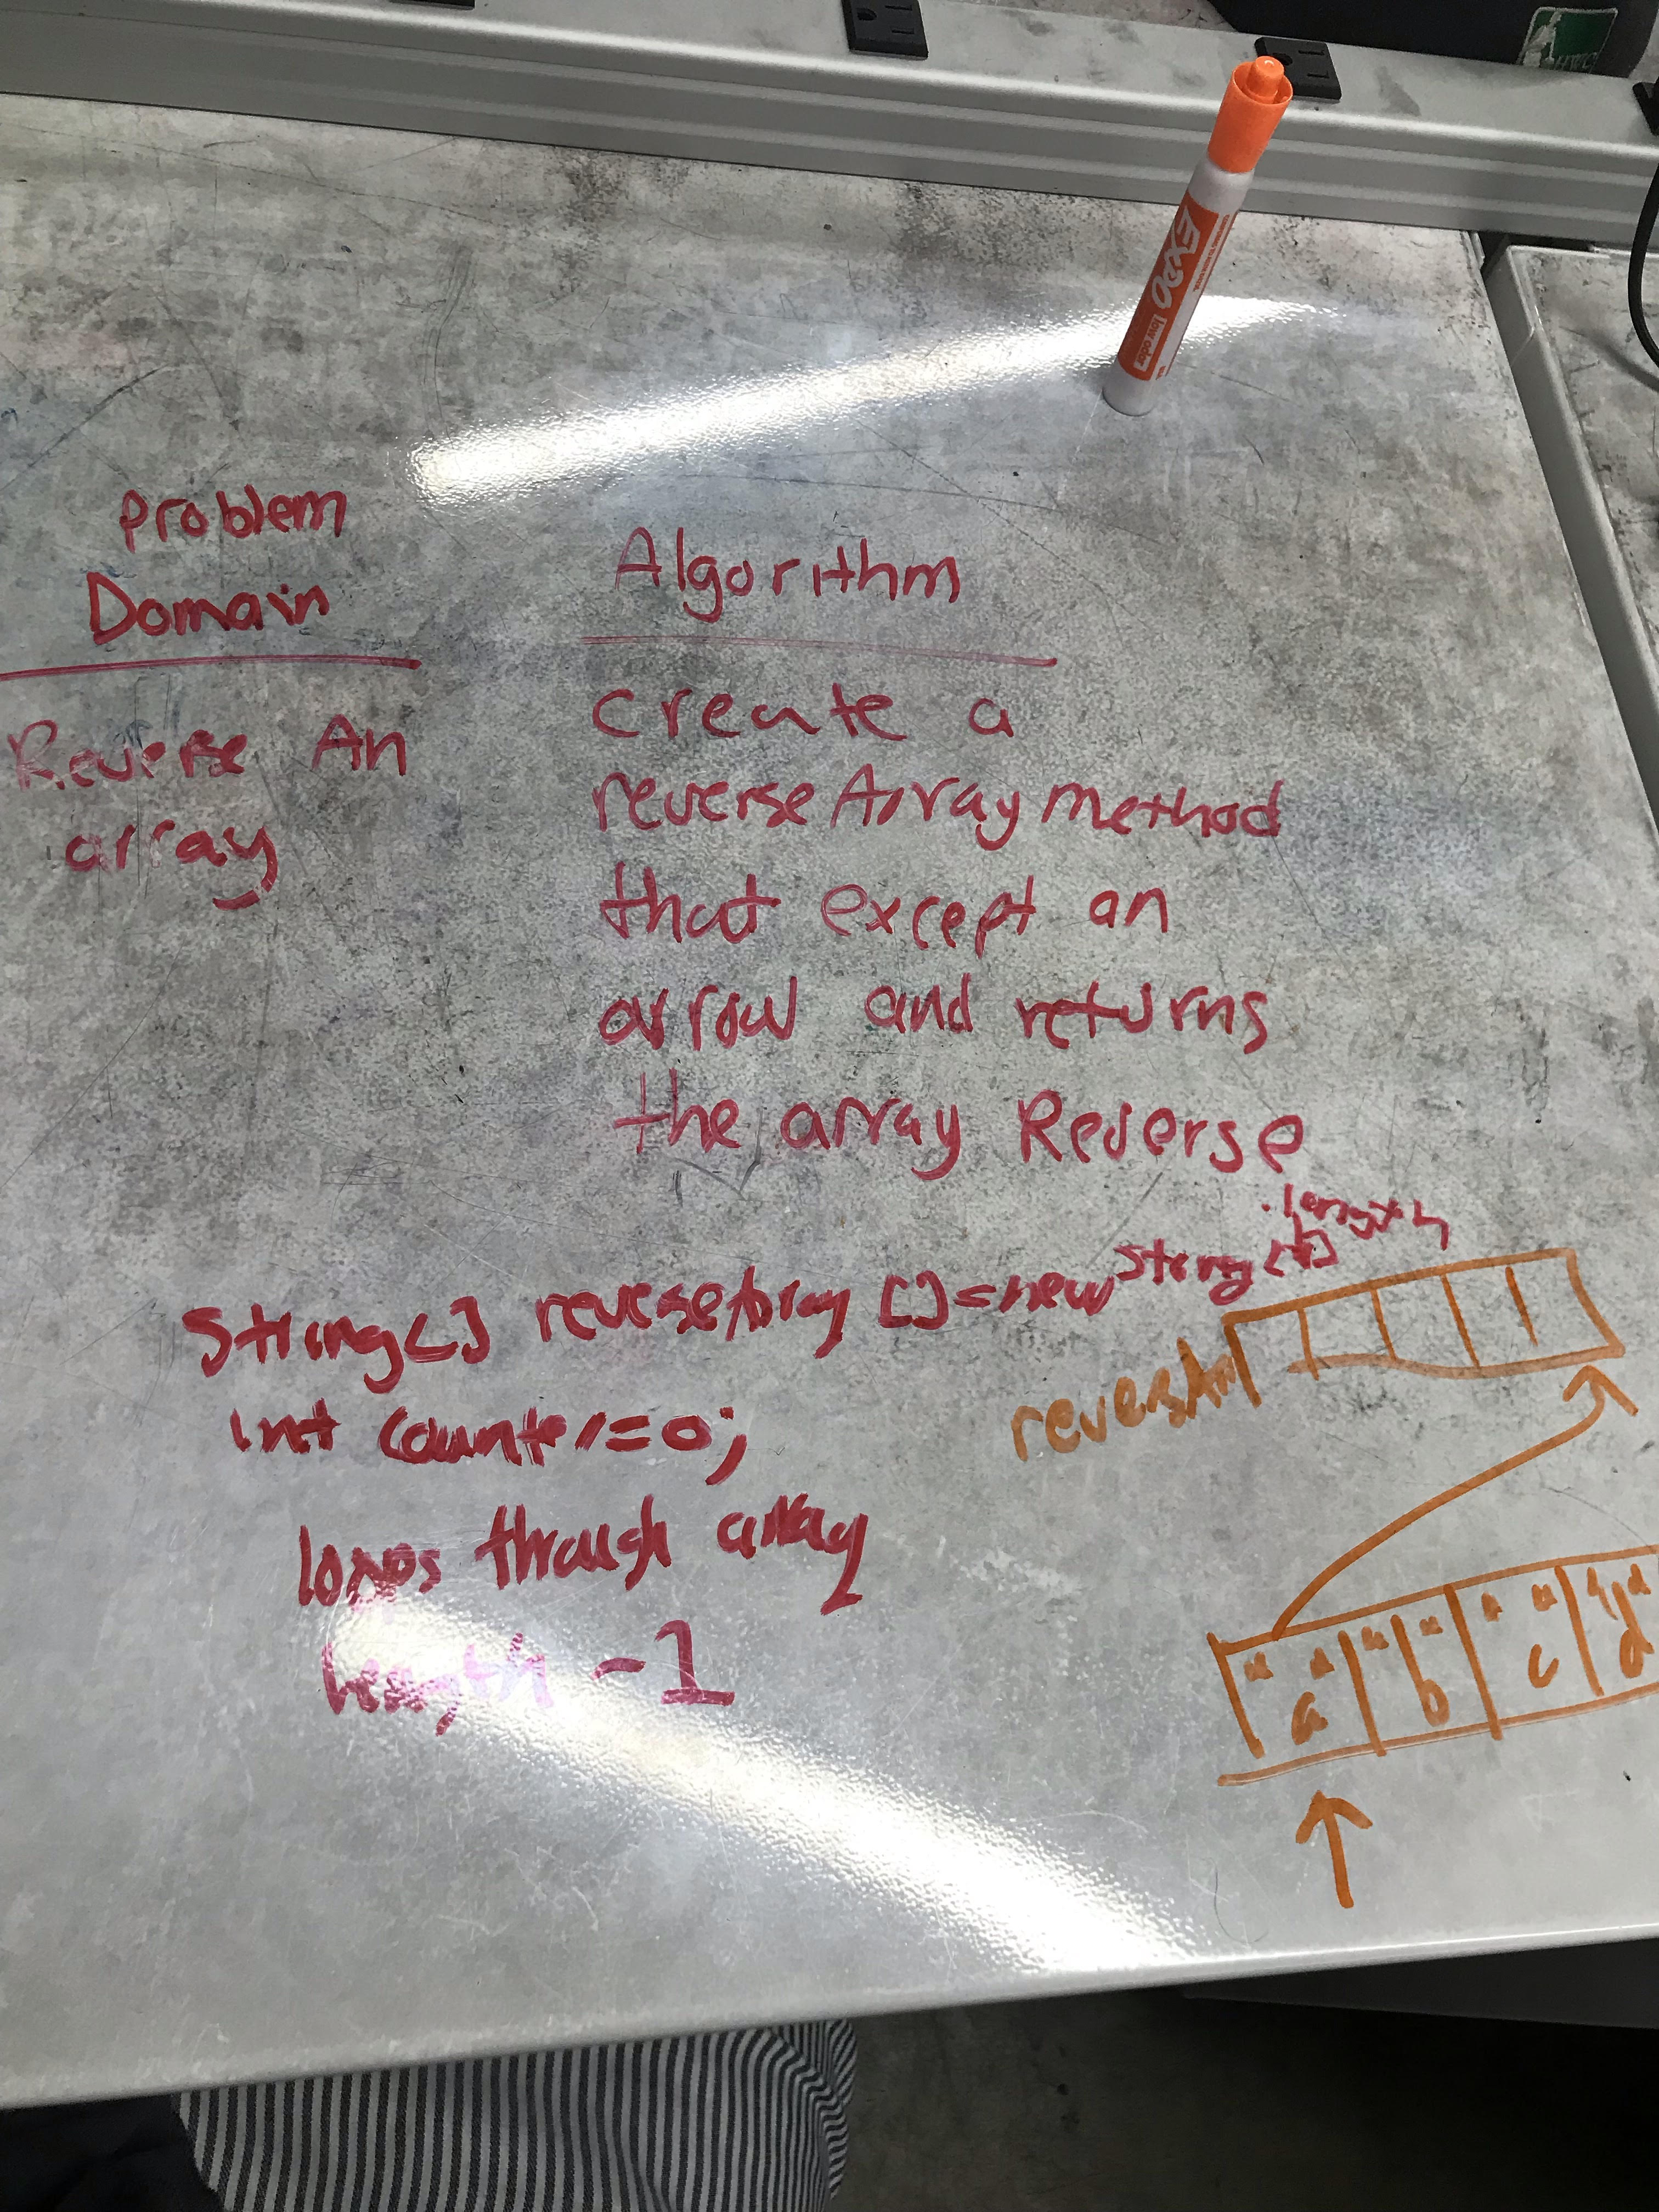 EXPO
low odor
Problem
Domain
Reverse An
array
Algorithm
create a
reverseArray method
that except an
arrow and returns
the array Reverse
.length
String[] reverseArray []=new String[]
int counter=0;
loops through array
length -1
" " " " " " " "
a b c d